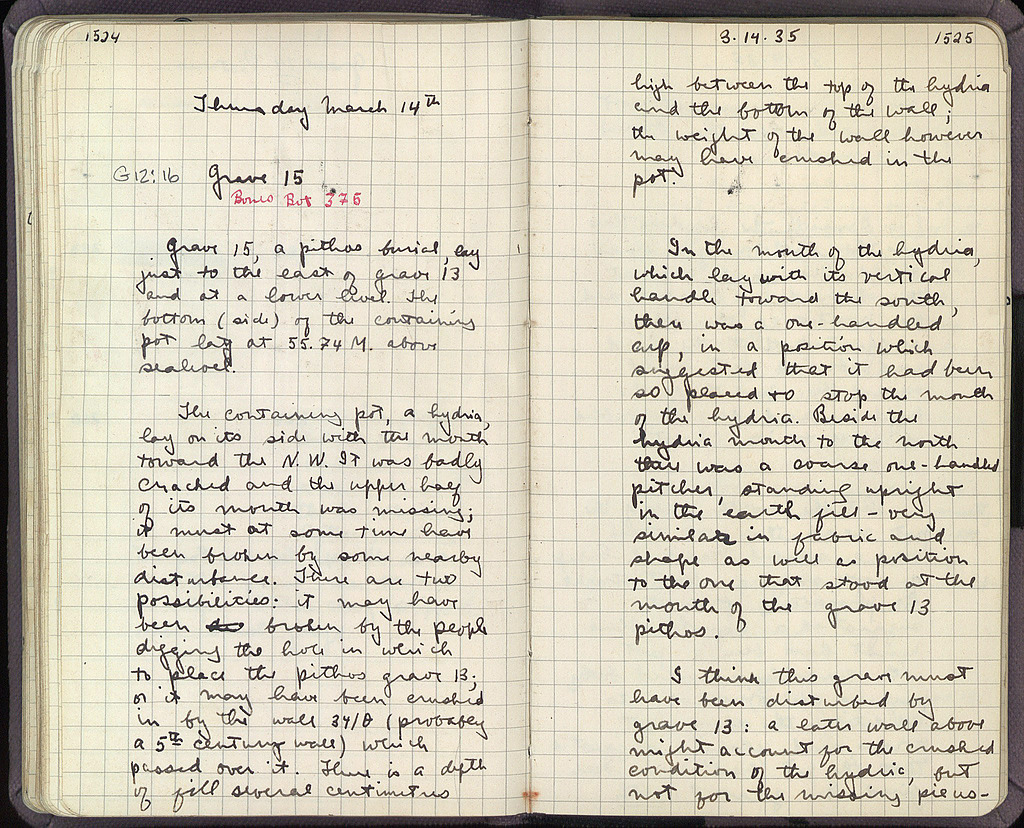 1524
Thursday March 14th
G12:16 Grave 15
Bones Box 376
Grave 15, a pithos burial, lay
just to the east of grave 13
and at a lower level. The
bottom (side) of the containing
pot lay at 55.74 M. above
sealevel.
The containing pot, a hydria,
lay on its side with the mouth
toward the N.W. It was badly
cracked and the upper half
of its mouth was missing;
it must at some time have
been broken by some nearby
disturbance. There are two
possibilities: it may have
been broken by the people
digging the hole in which
to place the pithos grave 13;
or it may have been crushed
in by the wall 34/Θ (probably
a 5th century wall) which
passed over it. There is a depth
of fill several centimetres
3.14.35 1525
high between the top of the hydria
and the bottom of the wall;
the weight of the wall however
may have crushed in the
pot.
In the mouth of the hydria,
which lay with its vertical
handle toward the south,
there was a one-handled
cup, in a position which
suggested that it had been
so placed to stop the mouth
of the hydria. Beside the
hydria mouth to the north
was a coarse one-handled
pitcher, standing upright
in the earth fill - very
similar in fabric and
shape as well as position
to the one that stood at the
mouth of the grave 13
pithos.
I think this grave must
have been disturbed by
grave 13: a later wall above
might account for the crushed
condition of the hydria, but
not for the missing pieces-